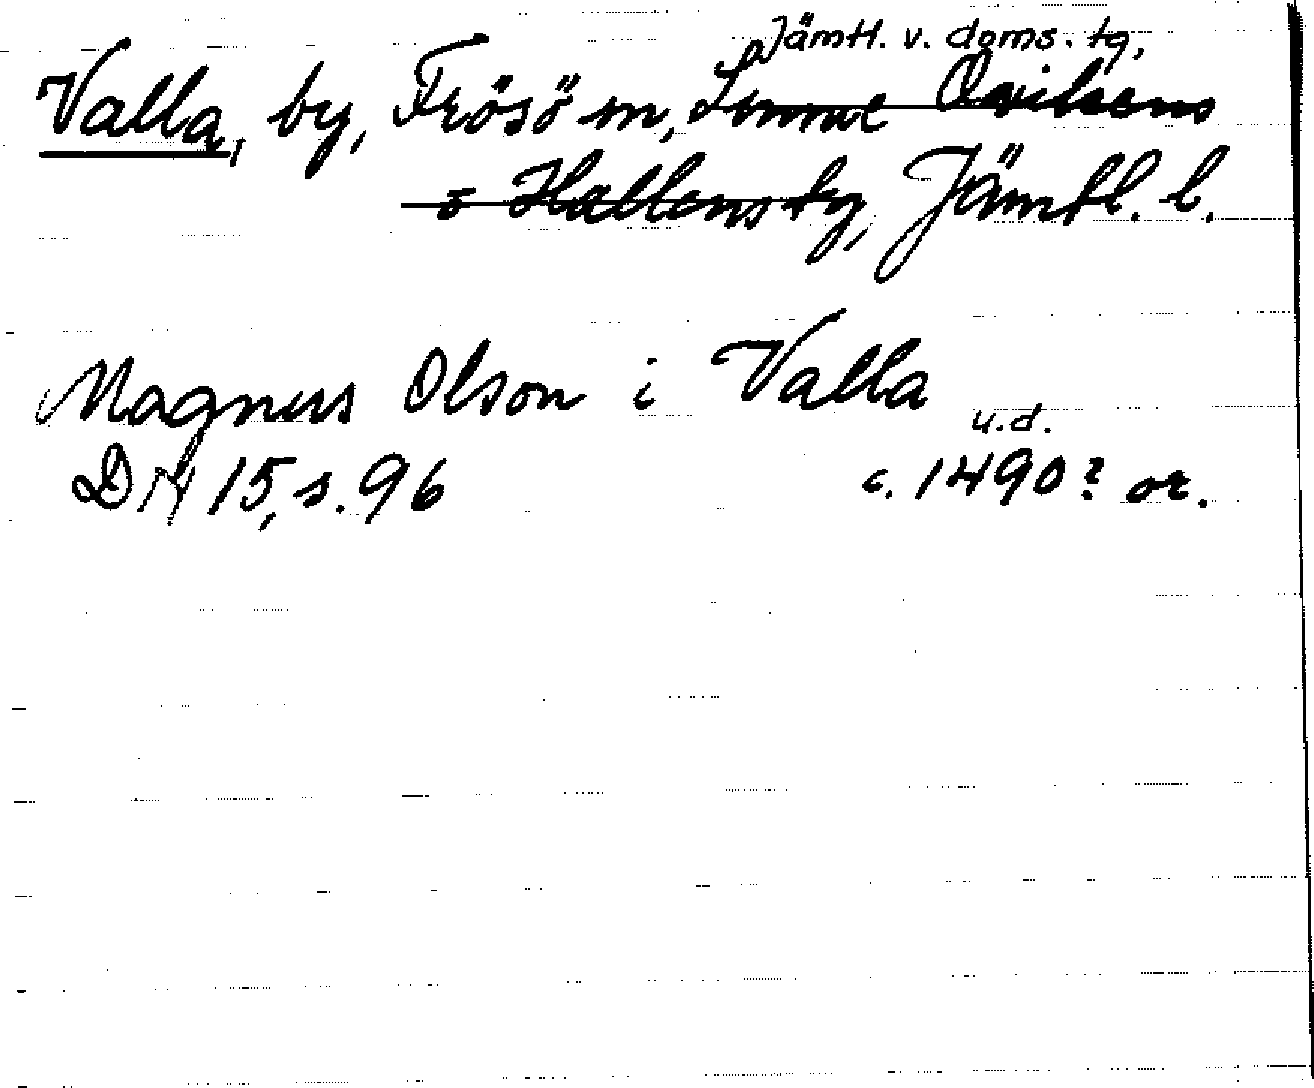 Jämtl. v. doms. tg,
Valla, by, Frösö sn, Sunne Oviksens
o Hallens tg, Jämtl. l.
Magnus Olson i Valla
u.d.
DN 15, s. 96 c. 1490? or.